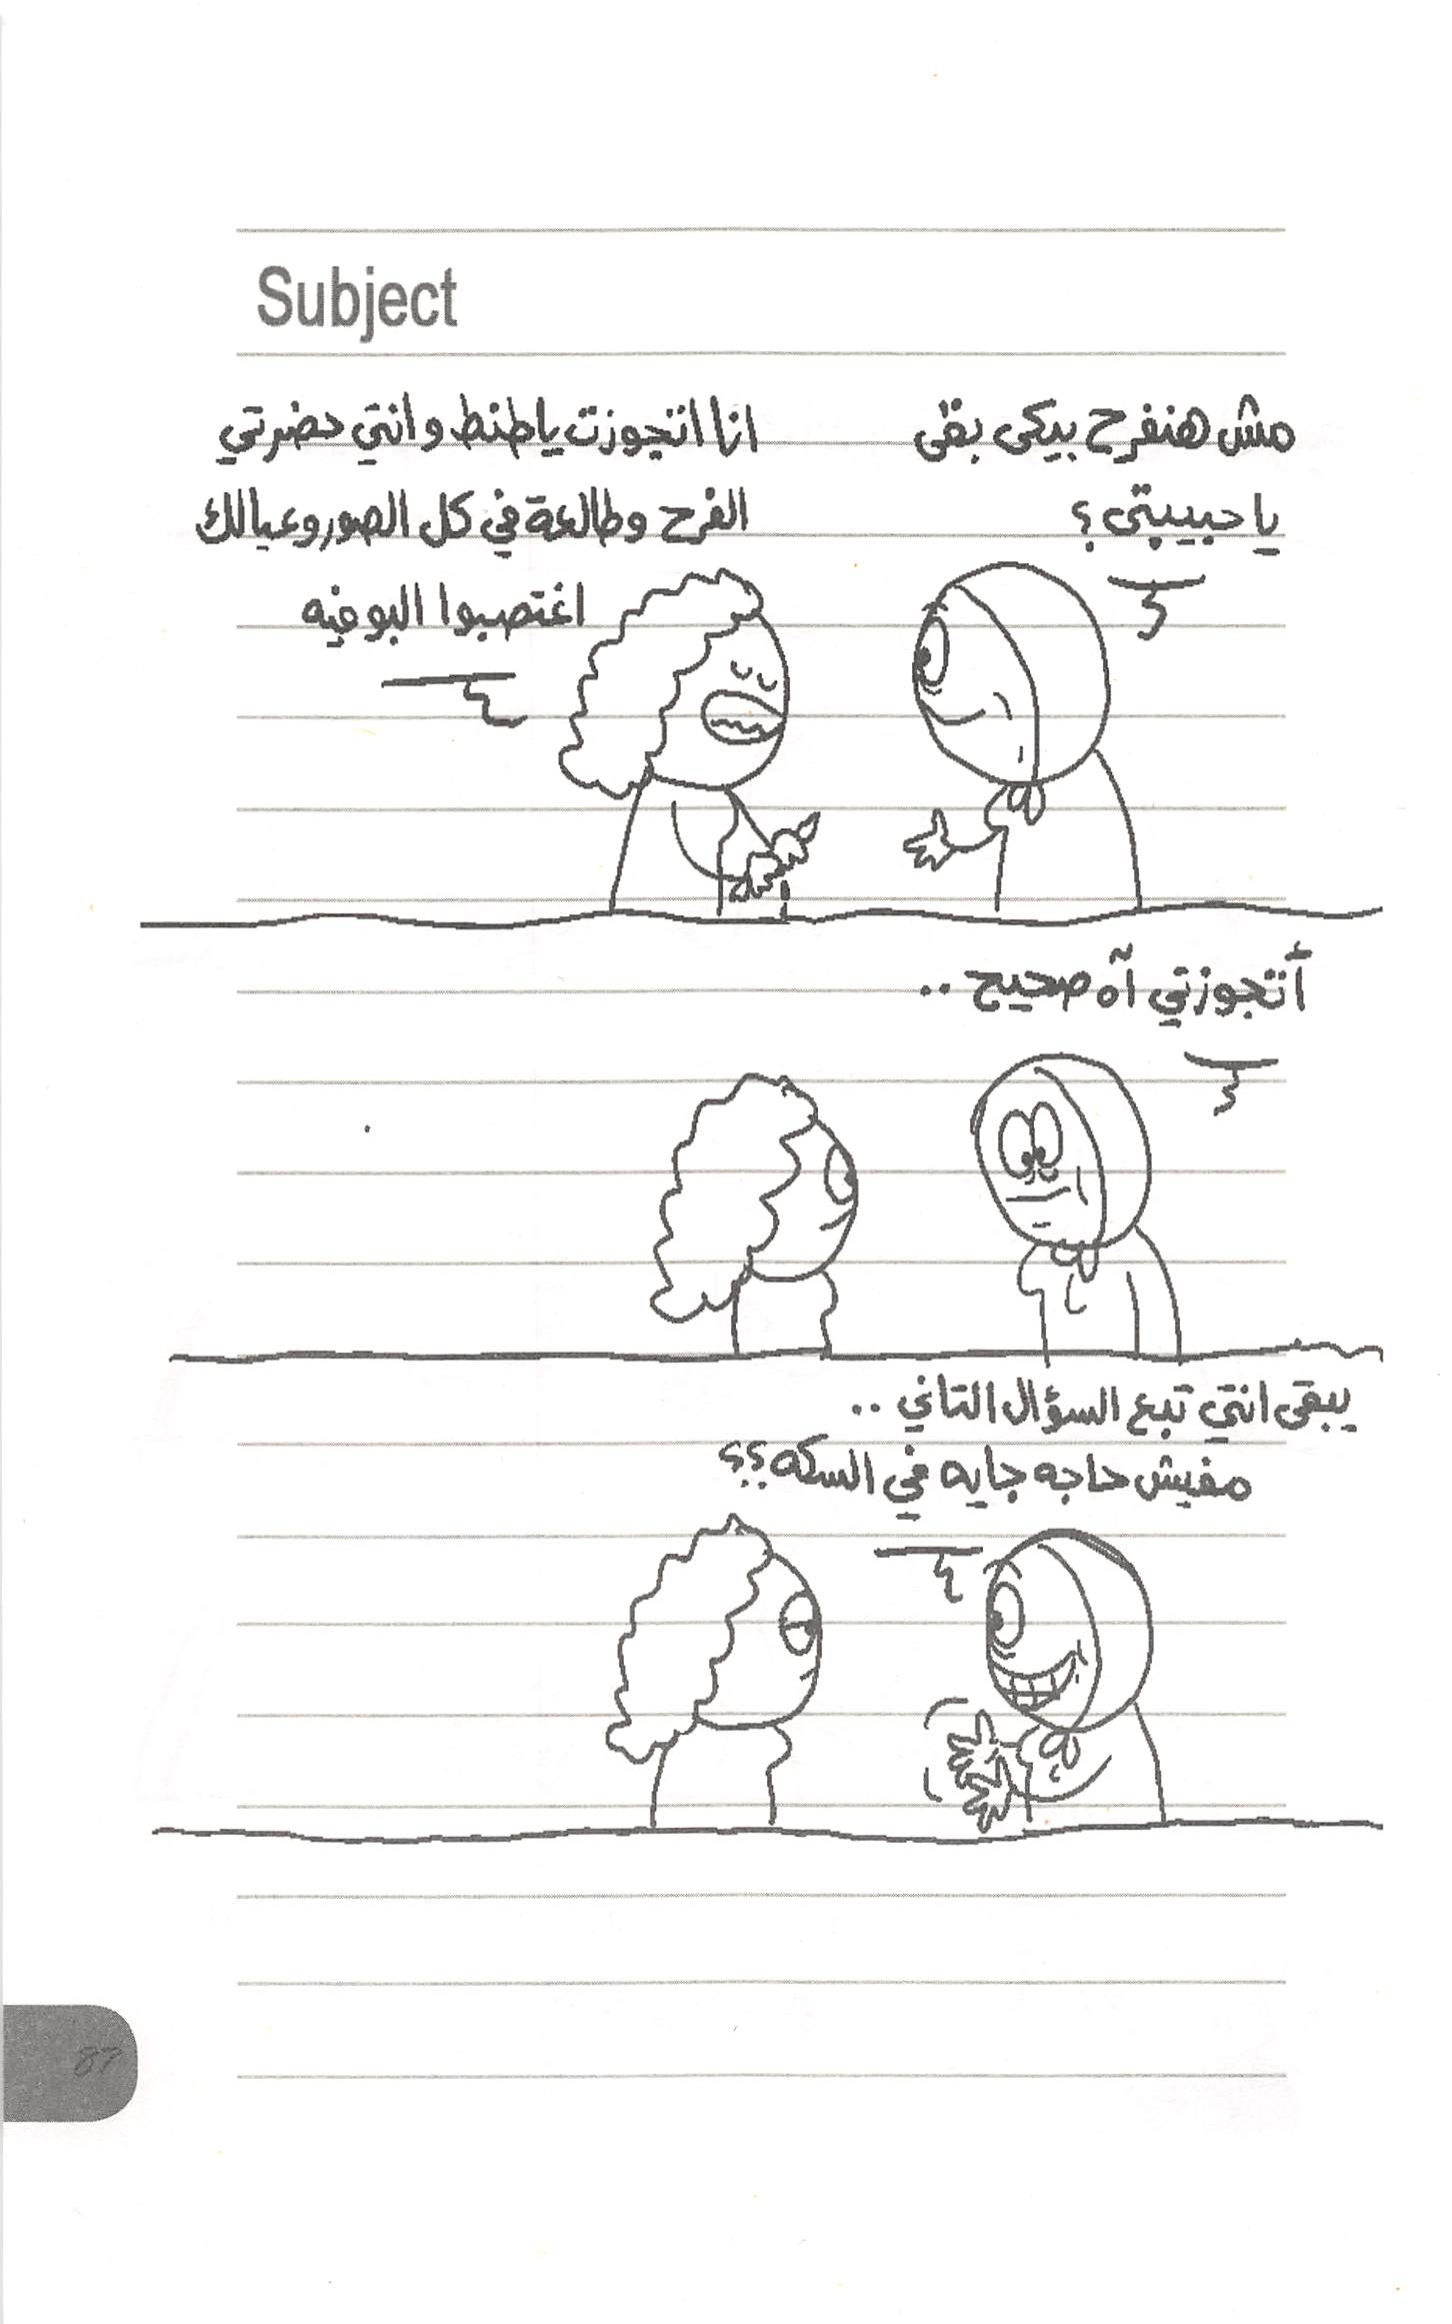 Subject
مش هنفرح بيكى بقى
يا حبيبتى؟
انا اتجوزت يا طنط وانتي حضرتي
الفرح وطالعة في كل الصور وعيالك
اغتصبوا البوفيه
أتجوزتي آه صحيح ..
يبقى انتي تبع السؤال التاني ..
مفيش حاجه جايه في السكه؟؟
87